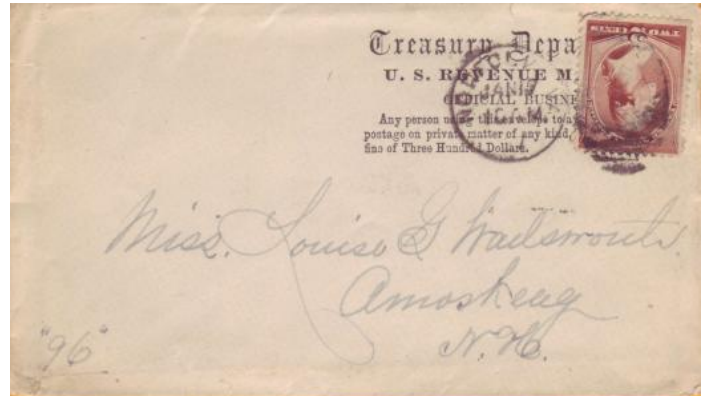 Treasury Depa
U. S. REVENUE M
OFFICIAL BUSINE
Any person using this envelope to av
postage on private matter of any kind,
fine of Three Hundred Dollars.
TWO CENTS
JAN
Miss. Louise G Wadsworth.
Amoskeag
N.H.
"96"